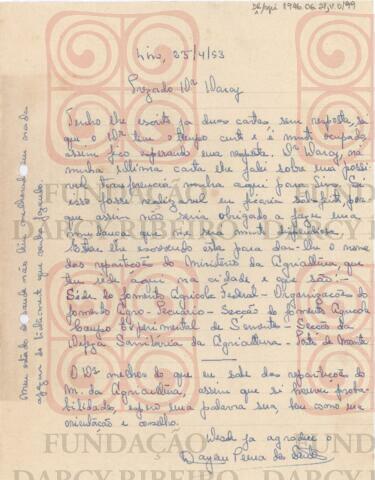 23/4/53
Prezado Dr Darcy
Tenho lhe escrito já duas cartas sem resposta, sei
que o Dr tem o tempo curto e é muito ocupado,
assim fico esperando sua resposta. Dr Darcy, na
minha última carta lhe falei sobre uma possi
vel transferencia minha aqui para Se
isso fosse realizavel eu ficaria satisfeito, por
que assim não seria obrigado a fazer uma
mudança que me seria muito dispendiosa
Estou lhe escrevendo esta para dar-lhe o nome
das repartições do Ministério da Agricultura, que
tem sede aqui na cidade e que são: -
Séde do Fomento Agricola Federal - Organizações do
Fomento Agro-Pecuario - Secção do Fomento Agricola
Campo Experimental de Sementes - Secção da
Defeza Sanitaria da Agricultura - Posto de Monta
O Dr melhor do que eu sabe das repartições do
M. da Agricultura, assim que si houver proba-
bilidades, espero uma palavra sua, bem como sua
orientação e conselho.
Desde já agradece o
Meu estado de saude não tem melhorado em nada
FUNDAÇÃO
DARCY RIBEIRO